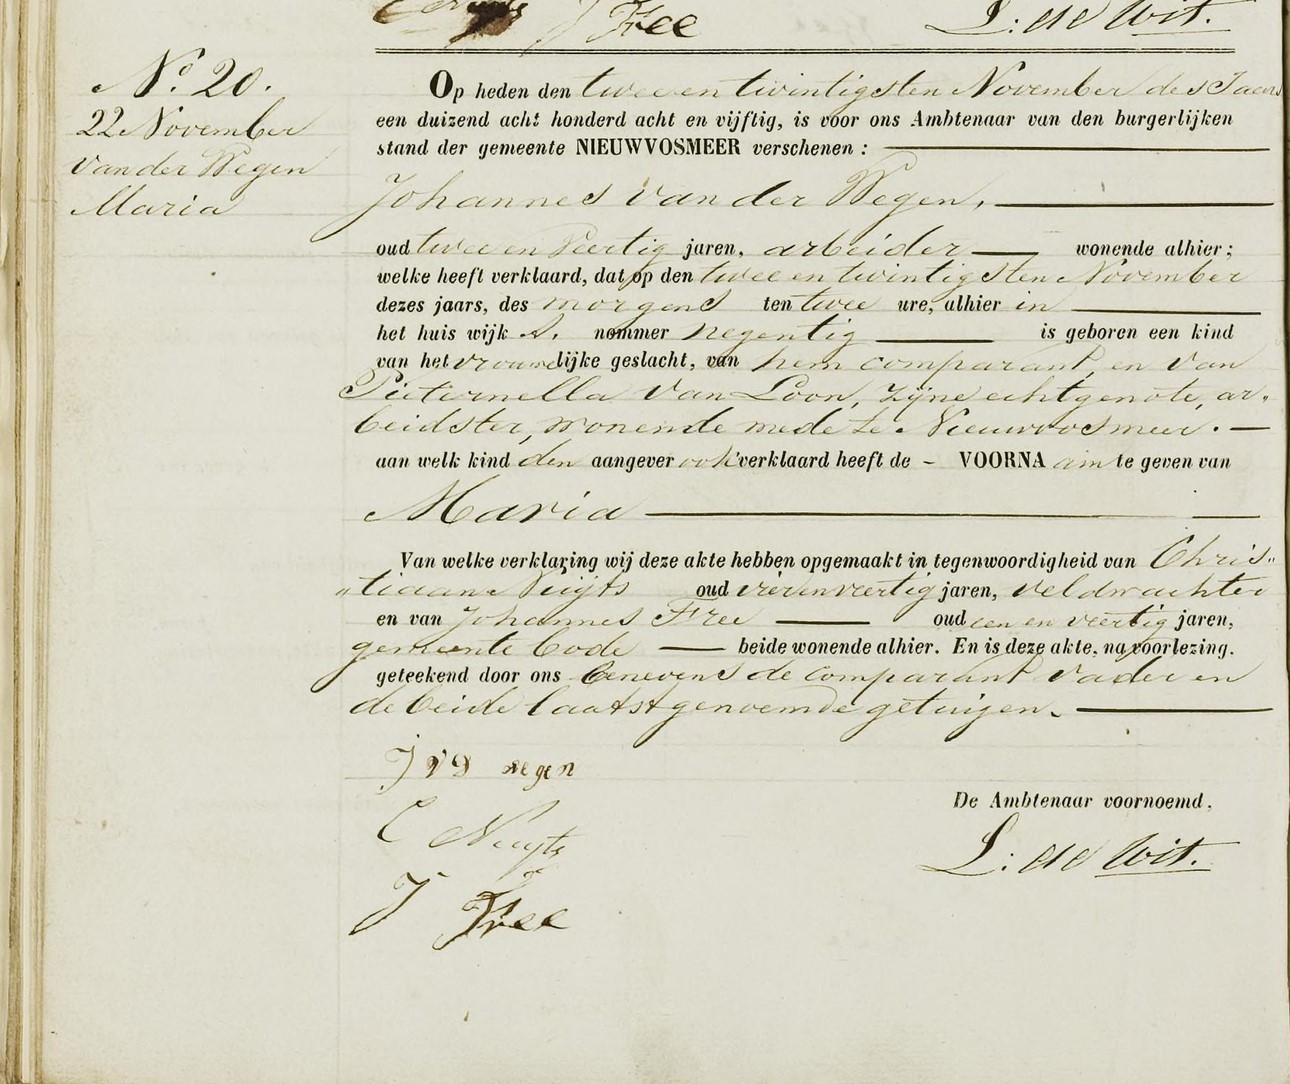 J Free
L: de Wit.
No 20.
22 November
van der Wegen
Maria
Op heden den twee en twintigsten November des Jaars
een duizend acht honderd acht en vijftig, is voor ons Ambtenaar van den burgerlijken
stand der gemeente NIEUWVOSMEER verschenen :
Johannes van der Wegen,
oud twee en veertig jaren, arbeider wonende alhier ;
welke heeft verklaard, dat op den twee en twintigsten November
dezes jaars, des morgens ten twee ure, alhier in
het huis wijk nommer negentig is geboren een kind
van het vrouwelijke geslacht, van hem comparant, en van
Pieternella van Loon, zijne echtgenote, ar-
beidster, wonende mede te Nieuwvosmeer. —
aan welk kind den aangever ook verklaard heeft de – VOORNA am te geven van
Maria
Van welke verklaring wij deze akte hebben opgemaakt in tegenwoordigheid van Chris„
„tiaan Nuijts oud vierenveertig jaren, veldwachter
en van Johannes Free oud een en veertig jaren,
gemeente bode — beide wonende alhier. En is deze akte, na voorlezing.
geteekend door ons benevens de comparant vader en
de beide laatstgenoemde getuigen.
J v d wegen
C Nuyts
J Free
De Ambtenaar voornoemd,
L: de Wit.